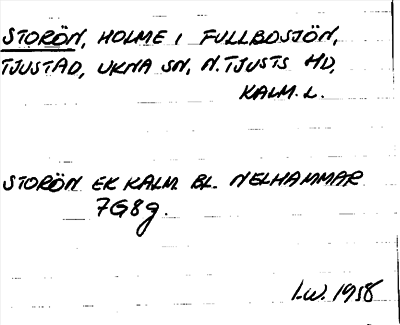 STORÖN, HOLME I FULLBOSJÖN,
TJUSTAD, UKNA SN, N. TJUSTS HD,
KALM. L.
STORÖN EK KALM BL. NELHAMMAR
7G8g.
I.W. 1958